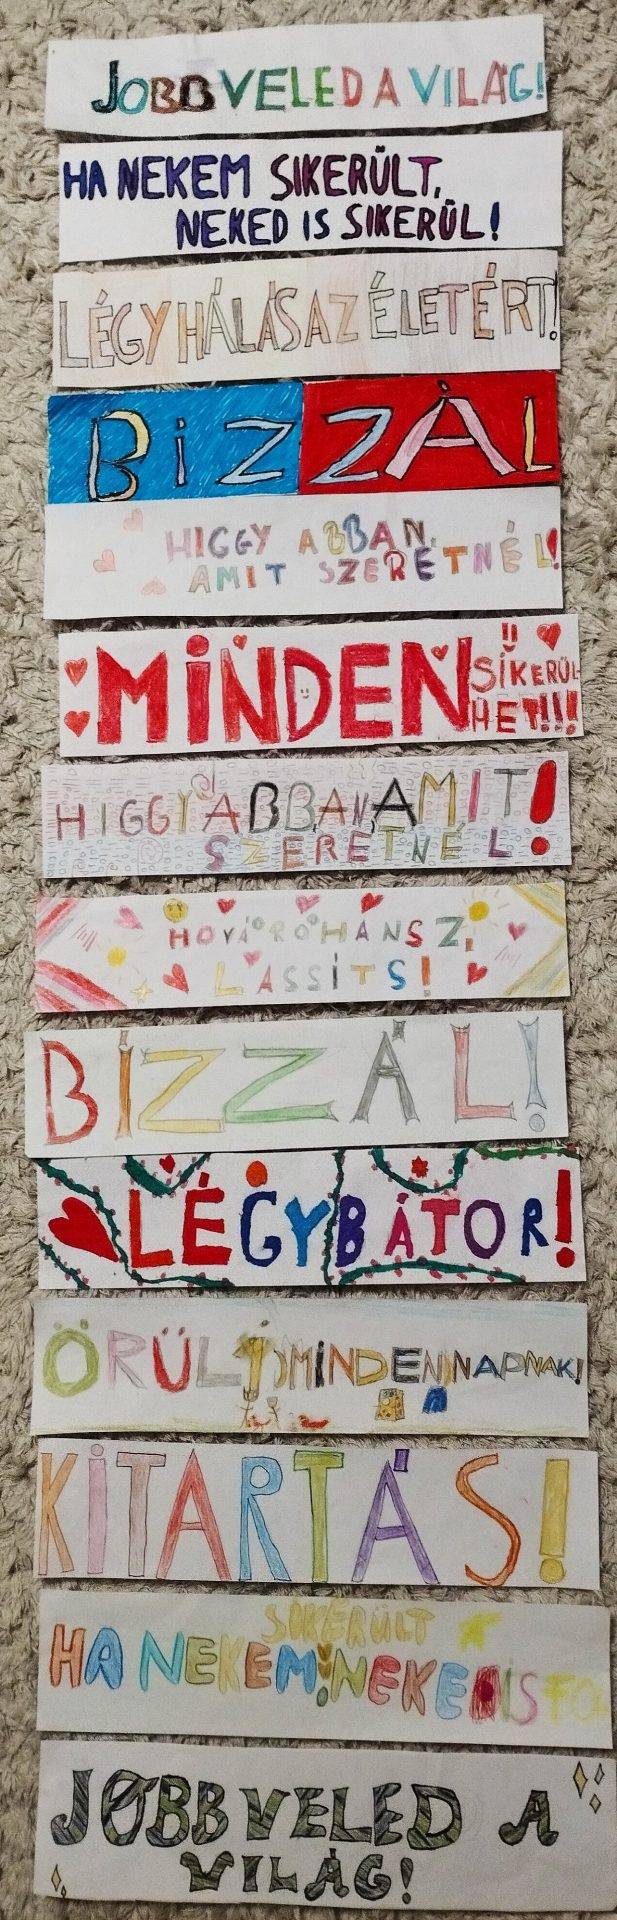 JOBB VELED A VILÁG!
HA NEKEM SIKERÜLT,
NEKED IS SIKERÜL!
LÉGY HÁLÁS AZ ÉLETÉRT!
BIZZÁL
HIGGY ABBAN,
AMIT SZERETNÉL!
MINDEN SIKERÜL-
HET!!!
HIGGY ABBAN, AMIT!
SZERETNÉL
HOVÁ ROHANSZ,
LASSÍTS!
BÍZZÁL!
LÉGY BÁTOR!
ÖRÜLJ MINDEN NAPNAK!
KITARTÁS!
SIKERÜLT
HA NEKEM NEKED IS FOG
JOBB VELED A
VILÁG!